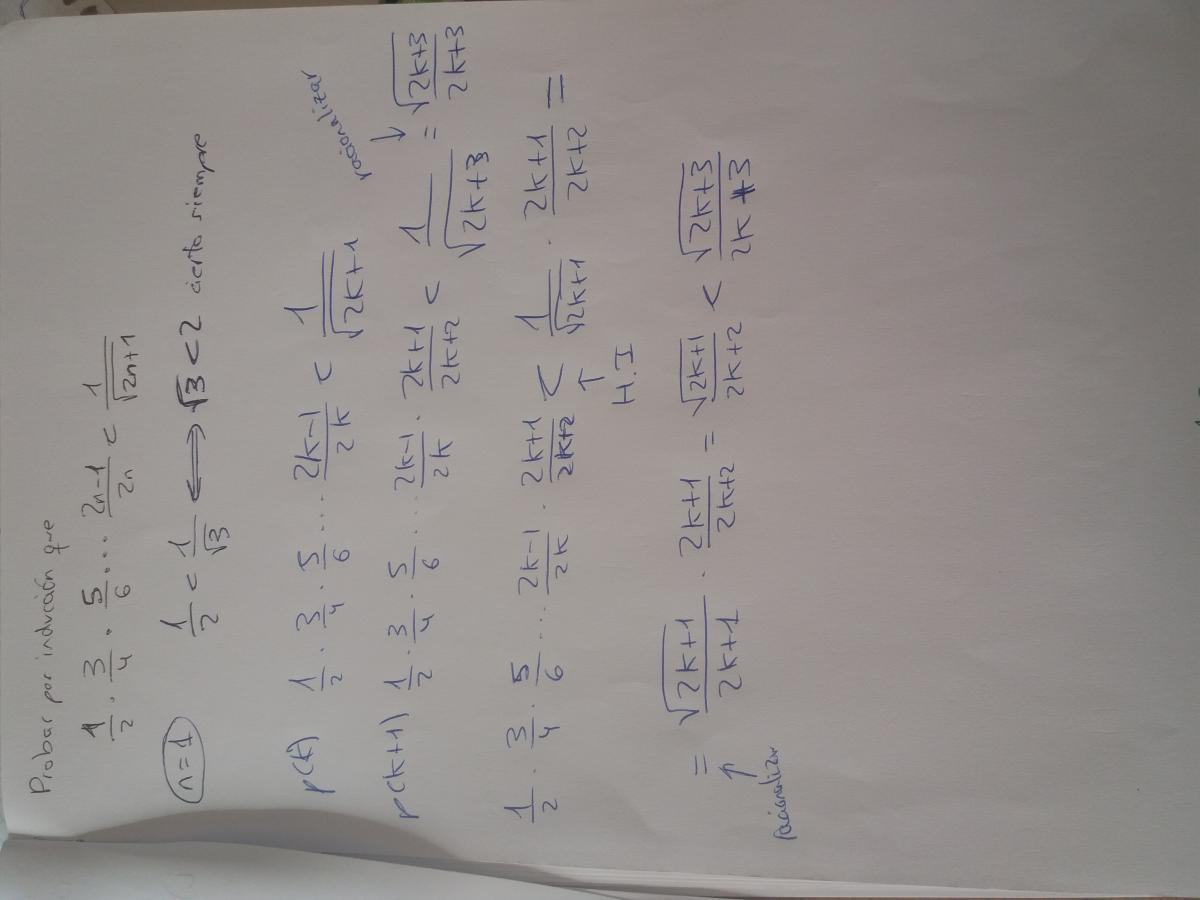 Probar por inducción que
1/2 · 3/4 · 5/6 ... 2n-1/2n < 1/√2n+1
n=1 1/2 < 1/√3 ⟺ √3 < 2 cierto siempre
p(k) 1/2 · 3/4 · 5/6 ... 2k-1/2k < 1/√2k+1
racionalizar
↓
p(k+1) 1/2 · 3/4 · 5/6 ... 2k-1/2k · 2k+1/2k+2 < 1/√2k+3 = √2k+3/2k+3
1/2 · 3/4 · 5/6 ... 2k-1/2k · 2k+1/2k+2 < 1/√2k+1 · 2k+1/2k+2 =
↑
H.I
= √2k+1/2k+1 · 2k+1/2k+2 = √2k+1/2k+2 < √2k+3/2k+3
↑
racionalizar